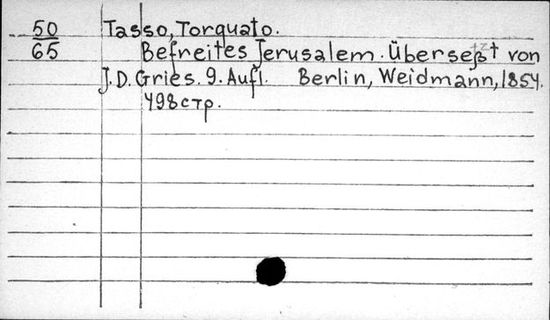 50 Tasso, Torquato.
65 Befreites Jerusalem. Überseßt von
J. D. Gries. 9. Aufl. Berlin, Weidmann, 1854.
498 стр.